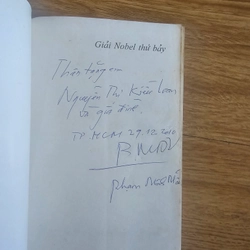 Giải Nobel thứ bảy
Thân tặng em
Nguyễn Thị Kiều Loan
và gia đình.
TP. HCM 29.12.2010